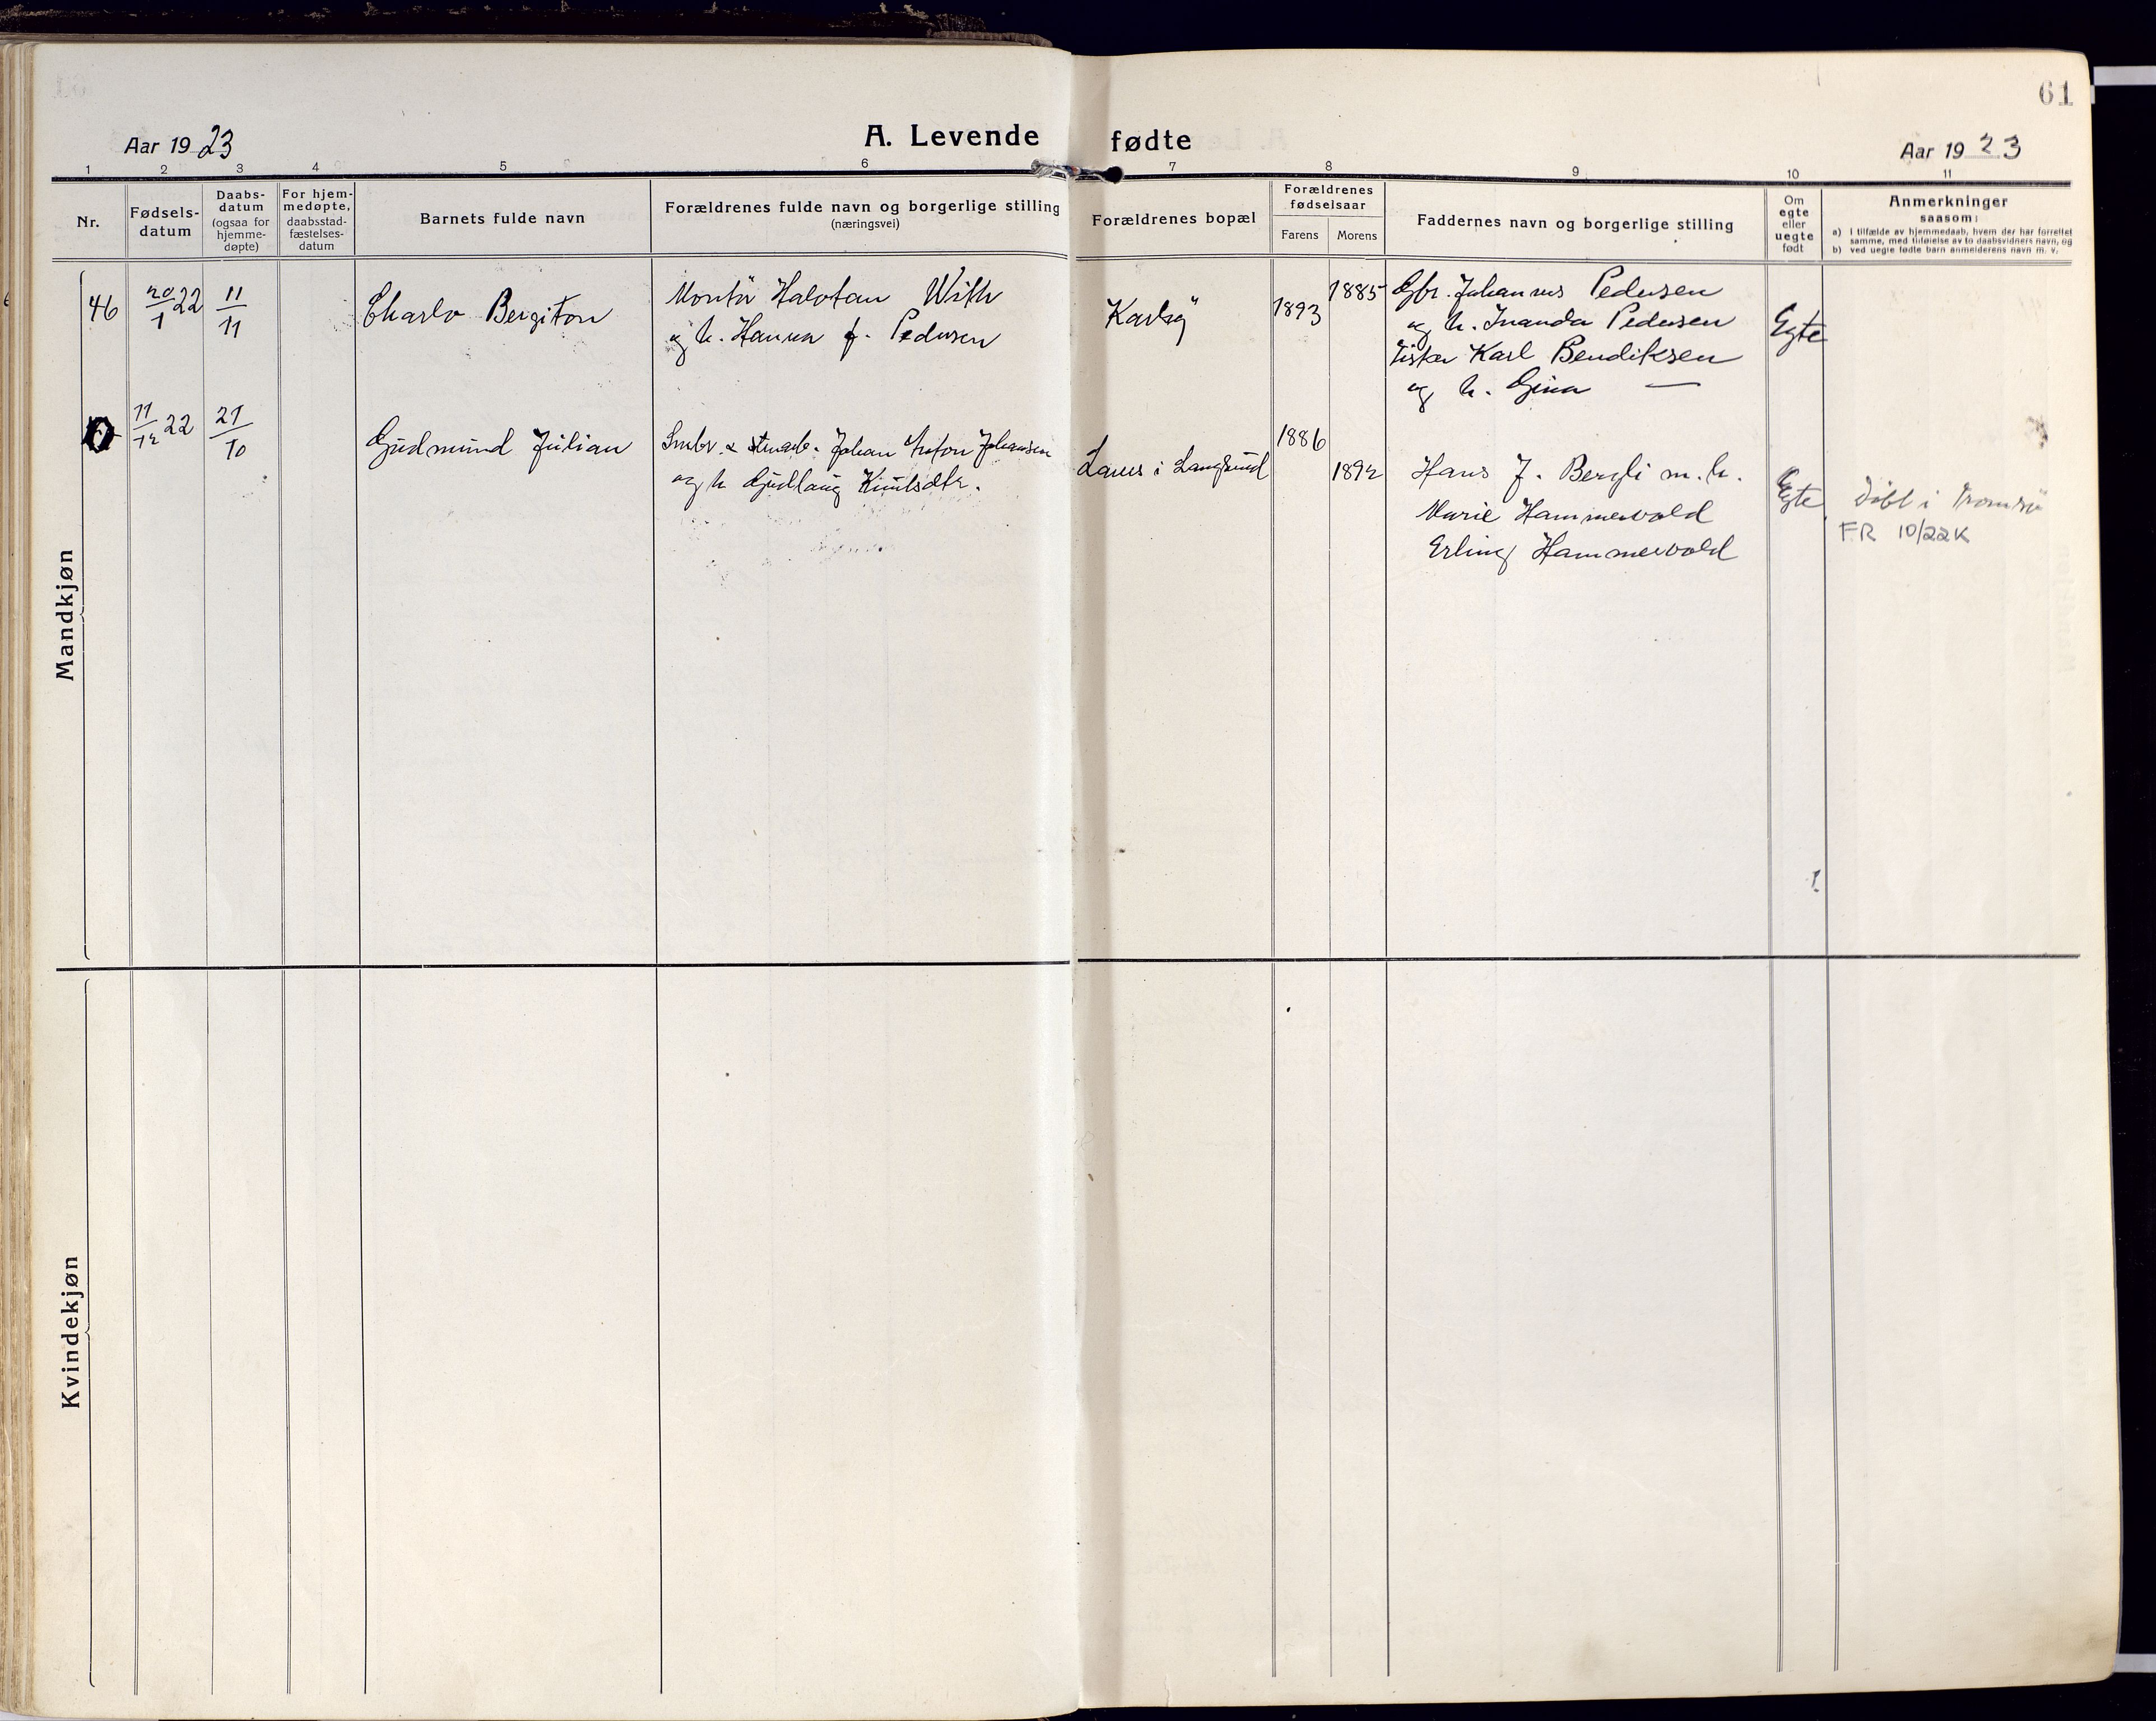 61
Aar 1923
A. Levende fødte
Aar 1923
1 2 3 4 5 6 7 8 9 10 11
Nr.
Fødsels-
datum
Daabs-
datum
(ogsaa for
hjemme-
døpte)
For hjem-
medøpte,
daabsstad-
fæstelses-
datum
Barnets fulde navn
Forældrenes fulde navn og borgerlige stilling
(næringsvei)
Forældrenes bopæl
Forældrenes
fødselsaar
Farens Morens
Faddernes navn og borgerlige stilling
Om
egte
eller
uegte
født
Anmerkninger
saasom:
a) I tilfælde av hjemmedaab, hvem der har forrettet
samme, med tilføielse av to daabsvidners navn, og
b) ved uegte fødte barn anmelderens navn m. v.
Mandkjøn
46
20/1 22
11/11
Charlo Bergiton
Montör With
og h. Hanna f. Pedersen
Karlsö
1893
1885
Gbr. Johannes Pedersen
og h. Inanda Pedersen
Fisker Karl Bendiksen
og h. Gina —
Egte
11/12 22
21/10
Gudmund Julian
Smbr. & Johan Anton Johansen
og h Gudlaug Knutsdtr.
i Langsund
1886
1892
Hans J. Bergli m. h.
Marie Hammervold
Erling Hammervold
Egte
Döbt i Tromsö
FR 10/22K
Kvindekjøn